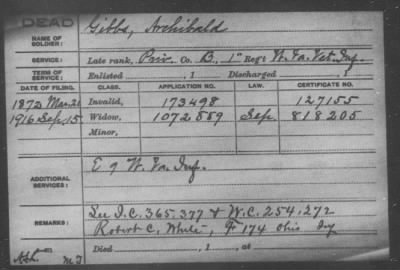 DEAD
NAME OF SOLDIER: Gibbs, Archibald
SERVICE: Late rank, Priv Co. B, 1" Reg't W. Va. Vet. Inf.
TERM OF SERVICE: Enlisted , 1 Discharged , 1
DATE OF FILING. CLASS. APPLICATION NO. LAW. CERTIFICATE NO.
1872 Mar. 21 Invalid, 173498 127155
1916 Sep. 15 Widow, 1072559 Sep. 818205
Minor,
ADDITIONAL SERVICES: E 9 W. Va. Inf.
REMARKS: See I.C. 365.377 & W.C. 254.272
Robert C. White, F 174 Ohio Inf
Died , 1 , at
M J